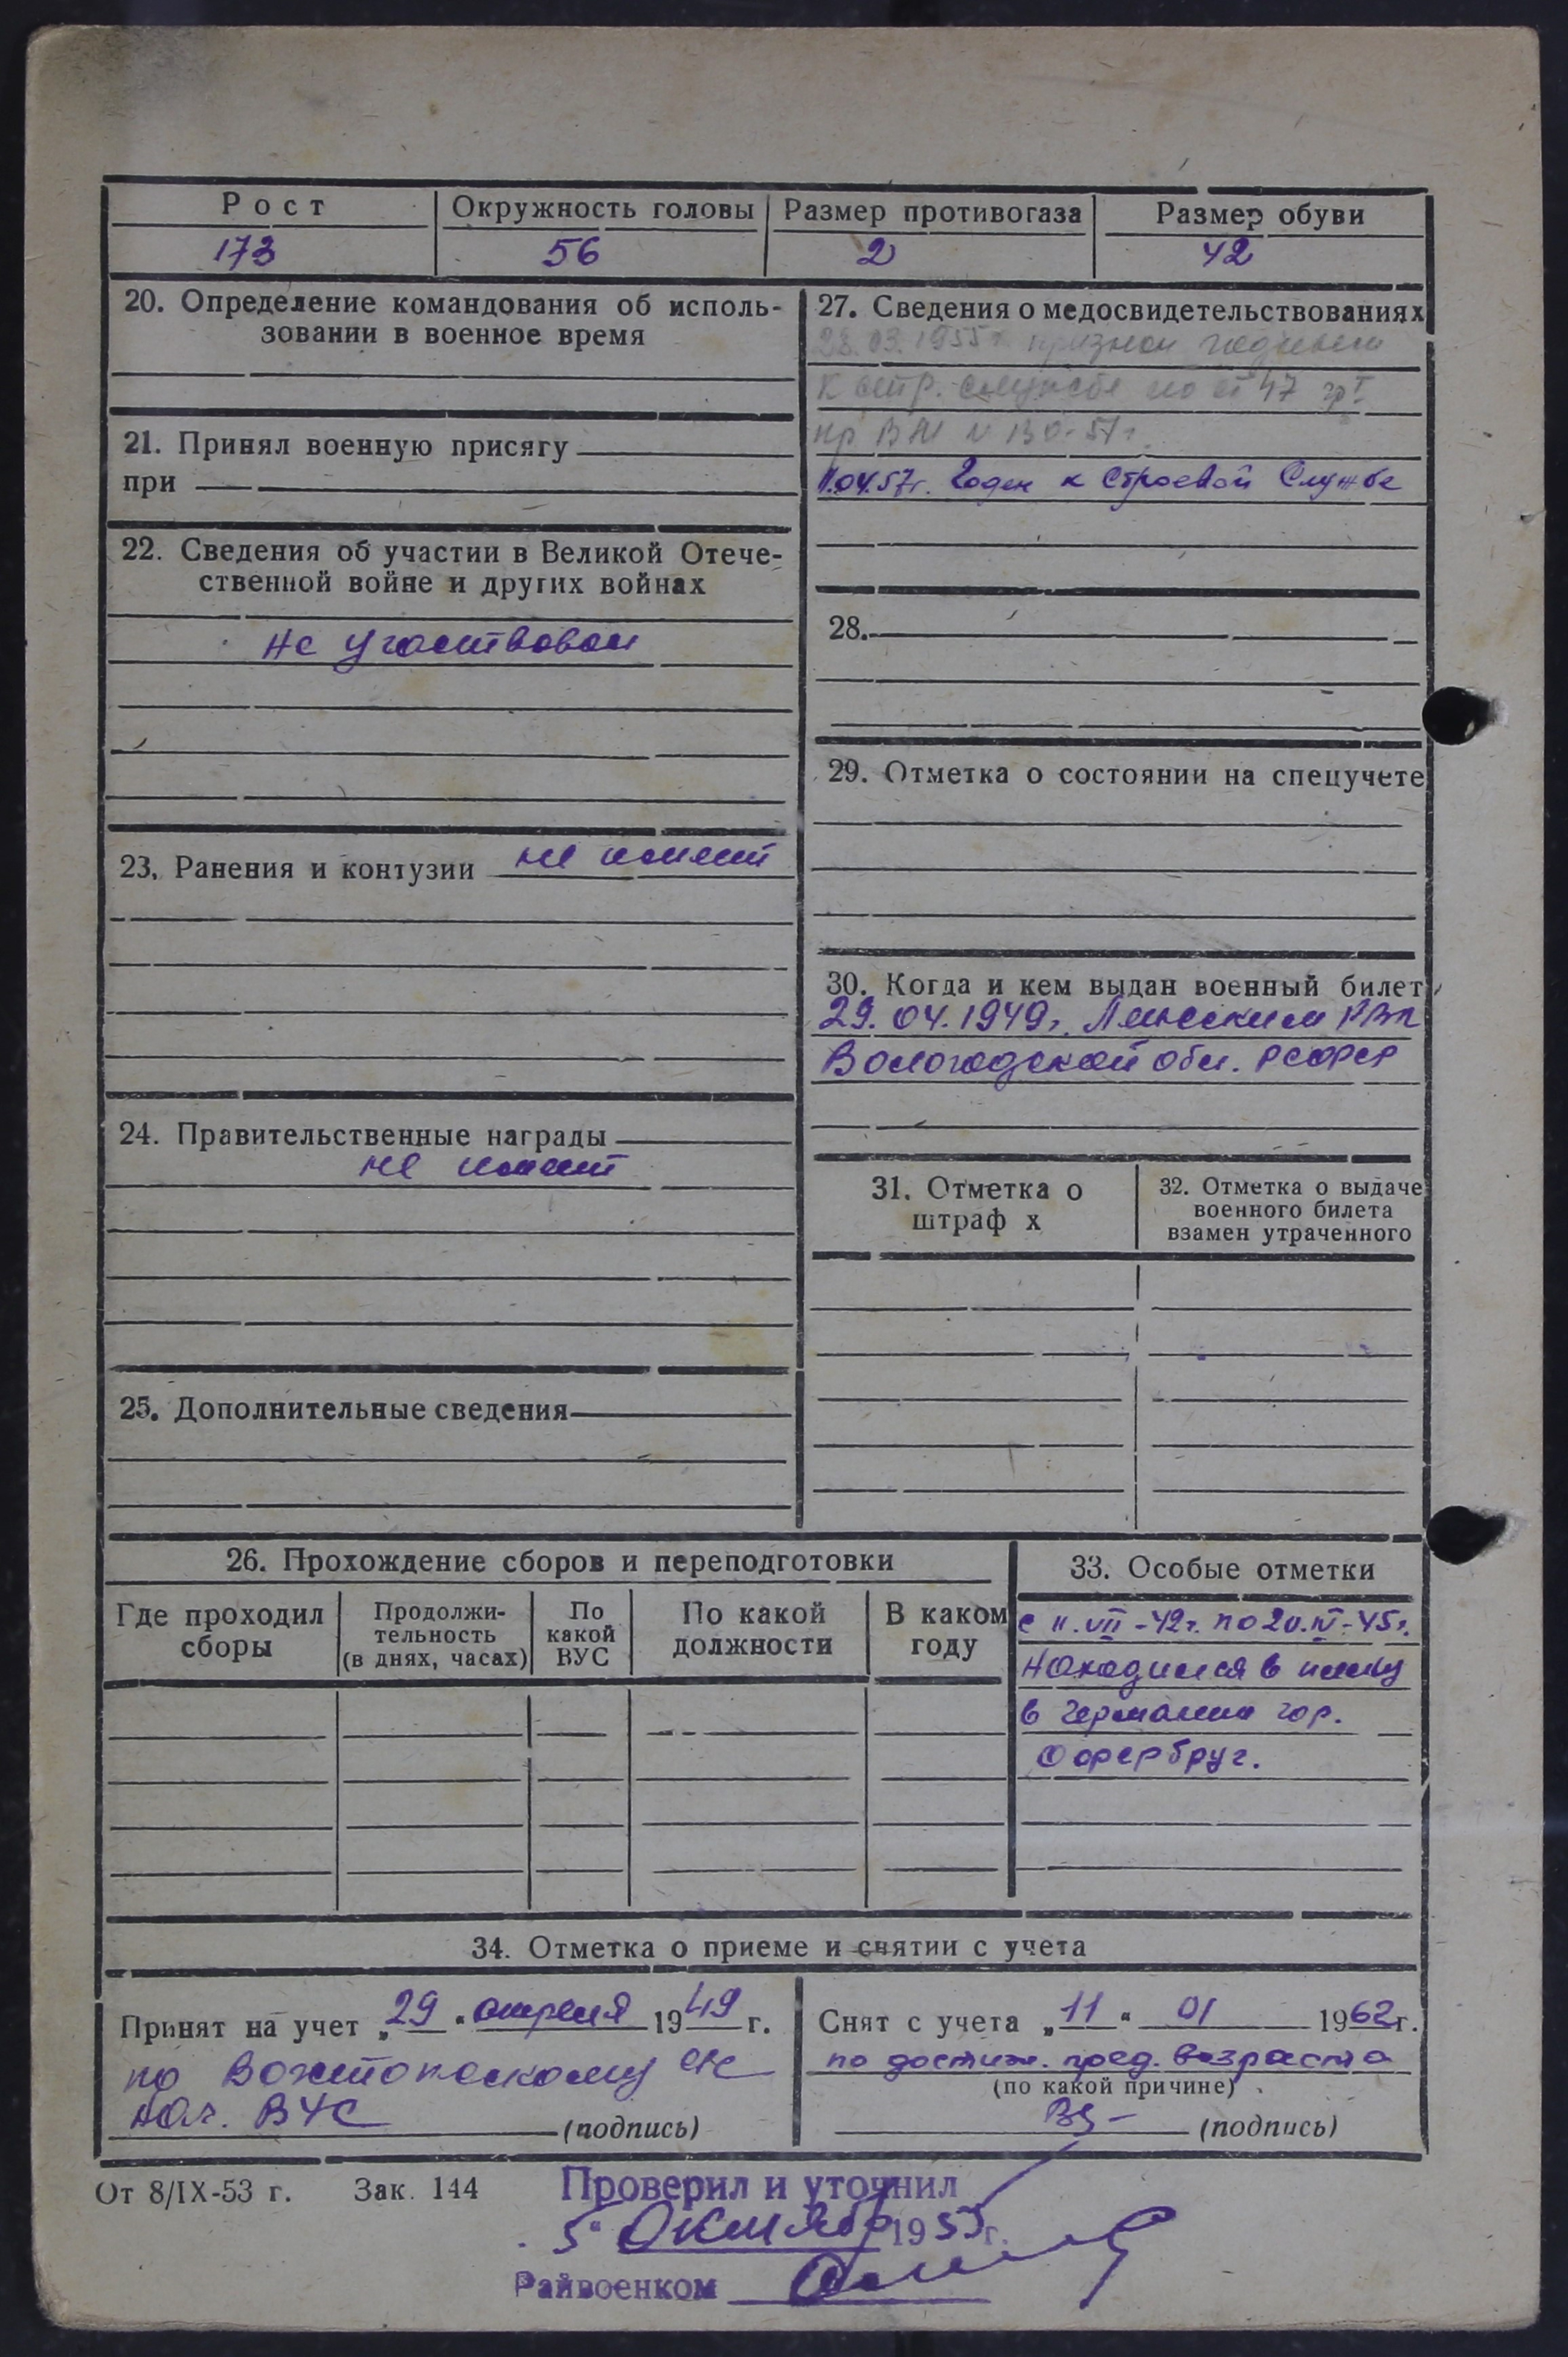 Рост
Окружность головы
Размер противогаза
Размер обуви
173
56
2
42
20. Определение командования об исполь-
зовании в военное время
21. Принял военную присягу
при
22. Сведения об участии в Великой Отече-
ственной войне и других войнах
не участвовал
23. Ранения и контузии не имеет
24. Правительственные награды
не имеет
25. Дополнительные сведения
27. Сведения о медосвидетельствованиях
23.03.1955г признан годным
к стр. службе по ст 47 гр I
пр ВМ
11.04.57г. Годен к Строевой Службе
28.
29. Отметка о состоянии на спецучете
30. Когда и кем выдан военный билет
29.04.1949г. РВК
Вологодской обл. РСФСР
31. Отметка о
штраф х
32. Отметка о выдаче
военного билета
взамен утраченного
26. Прохождение сборов и переподготовки
Где проходил
сборы
Продолжи-
тельность
(в днях, часах)
По
какой
ВУС
По какой
должности
В каком
году
33. Особые отметки
с 11.VII-42г. по 20.IV-45г.
находился в плену
в Германии гор.
34. Отметка о приеме и снятии с учета
Принят на учет „29“ апреля 1949 г.
по
нач. ВУС (подпись)
Снят с учета „11“ 01 1962г.
по достиж. пред. возраста
(по какой причине)
(подпись)
От 8/IX-53 г. Зак. 144
Проверил и уточнил
5“ Октябр 1955г.
Райвоенком